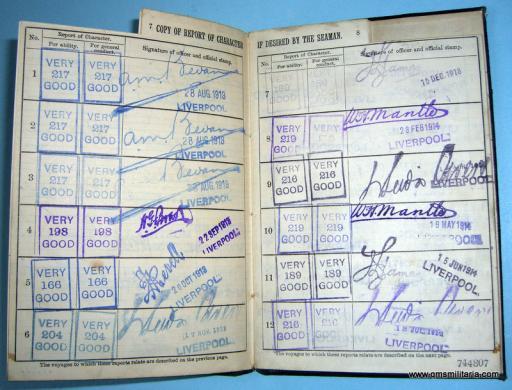 7 COPY OF REPORT OF CHARACTER
No.
Report of Character.
For ability.
For general conduct.
Signature of officer and official stamp.
1
VERY 217 GOOD
VERY 217 GOOD
28 AUG. 1913
LIVERPOOL
2
VERY 217 GOOD
VERY 217 GOOD
28 AUG. 1913
LIVERPOOL.
3
VERY 217 GOOD
VERY 217 GOOD
AUG. 1913
LIVERPOOL.
4
VERY 198 GOOD
VERY 198 GOOD
22 SEP 1913
LIVERPOOL.
5
VERY 166 GOOD
VERY 166 GOOD
OCT 1913
LIVERPOOL.
6
VERY 204 GOOD
VERY 204 GOOD
LIVERPOOL
The voyages to which these reports relate are described on the previous page.
IF DESIRED BY THE SEAMAN. 8
No.
Report of Character.
For ability.
For general conduct.
Signature of officer and official stamp.
7
GOOD
GOOD
15 DEC. 1913
8
VERY 219 GOOD
VERY GOOD
W. H. Mantle
FEB 1914
LIVERPOOL.
9
VERY 216 GOOD
VERY 216 GOOD
LIVERPOOL.
10
VERY 219 GOOD
VERY 219 GOOD
W. H. Mantle
MAY 1914
LIVERPOOL
11
VERY 189 GOOD
VERY 189 GOOD
15 JUN 1914
LIVERPOOL.
12
VERY 216 GOOD
VERY 216 GOOD
LIVERPOOL.
The voyages to which these reports relate are described on the next page.
744807
www.qmsmilitaria.com